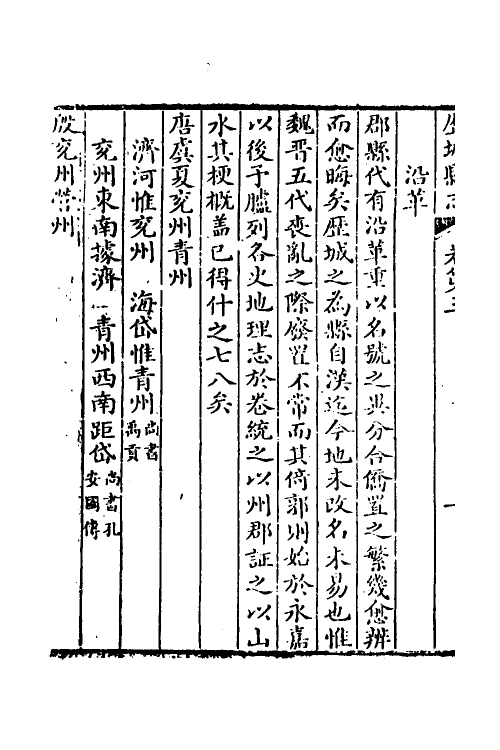 歷城縣志 卷第三 一
沿革
郡縣代有沿革重以名號之異分合僑置之繁幾愈辨
而愈晦矣歷城之為縣自漢迄今地未改名未易也惟
魏晉五代喪亂之際廢置不常而其倚郭則始於永嘉
以後予臚列各史地理志於卷統之以州郡証之以山
水其梗概盖已得什之七八矣
唐虞夏兖州青州
濟河惟兖州 海岱惟青州尚書禹貢
兖州東南據濟 青州西南距岱尚書孔安國傳
殷兖州營州